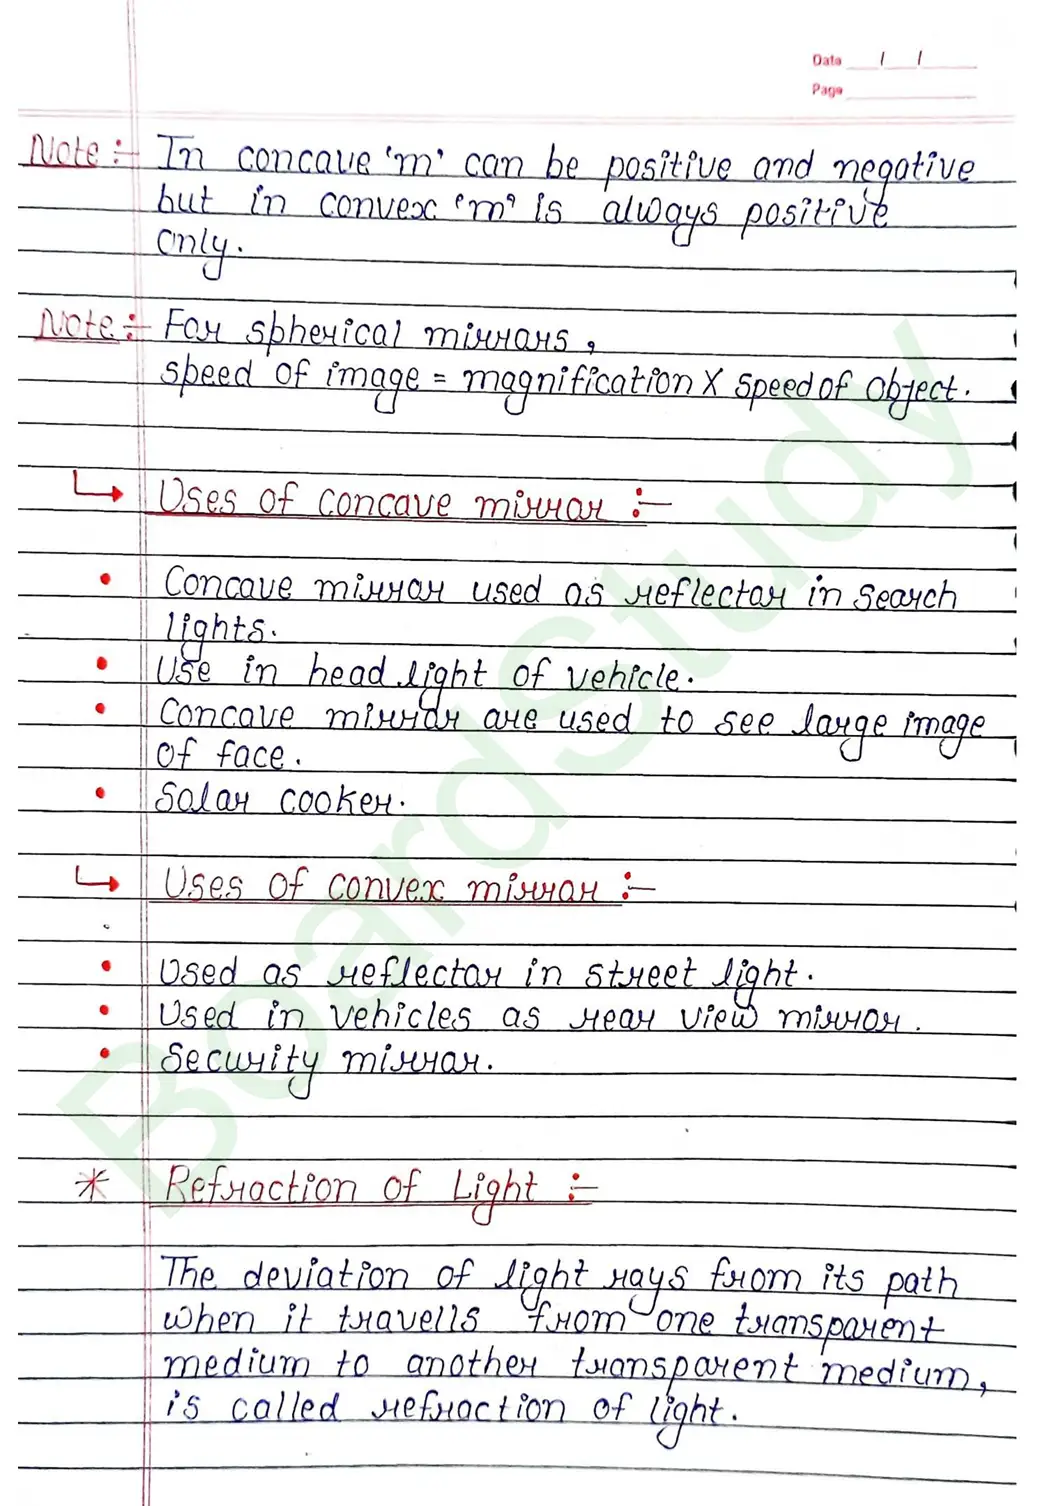 Date / /
Page
Note :- In concave 'm' can be positive and negative
but in convex 'm' is always positive
only.
Note :- For spherical mirrors,
speed of image = magnification X speed of object.
Uses of concave mirror :-
• Concave mirror used as reflector in search
lights.
• Use in head light of vehicle.
• Concave mirror are used to see large image
of face.
• Solar cooker.
Uses of convex mirror :-
• Used as reflector in street light.
• Used in vehicles as rear view mirror.
• Security mirror.
* Refraction of Light :-
The deviation of light rays from its path
when it travells from one transparent
medium to another transparent medium,
is called refraction of light.
BoardStudy